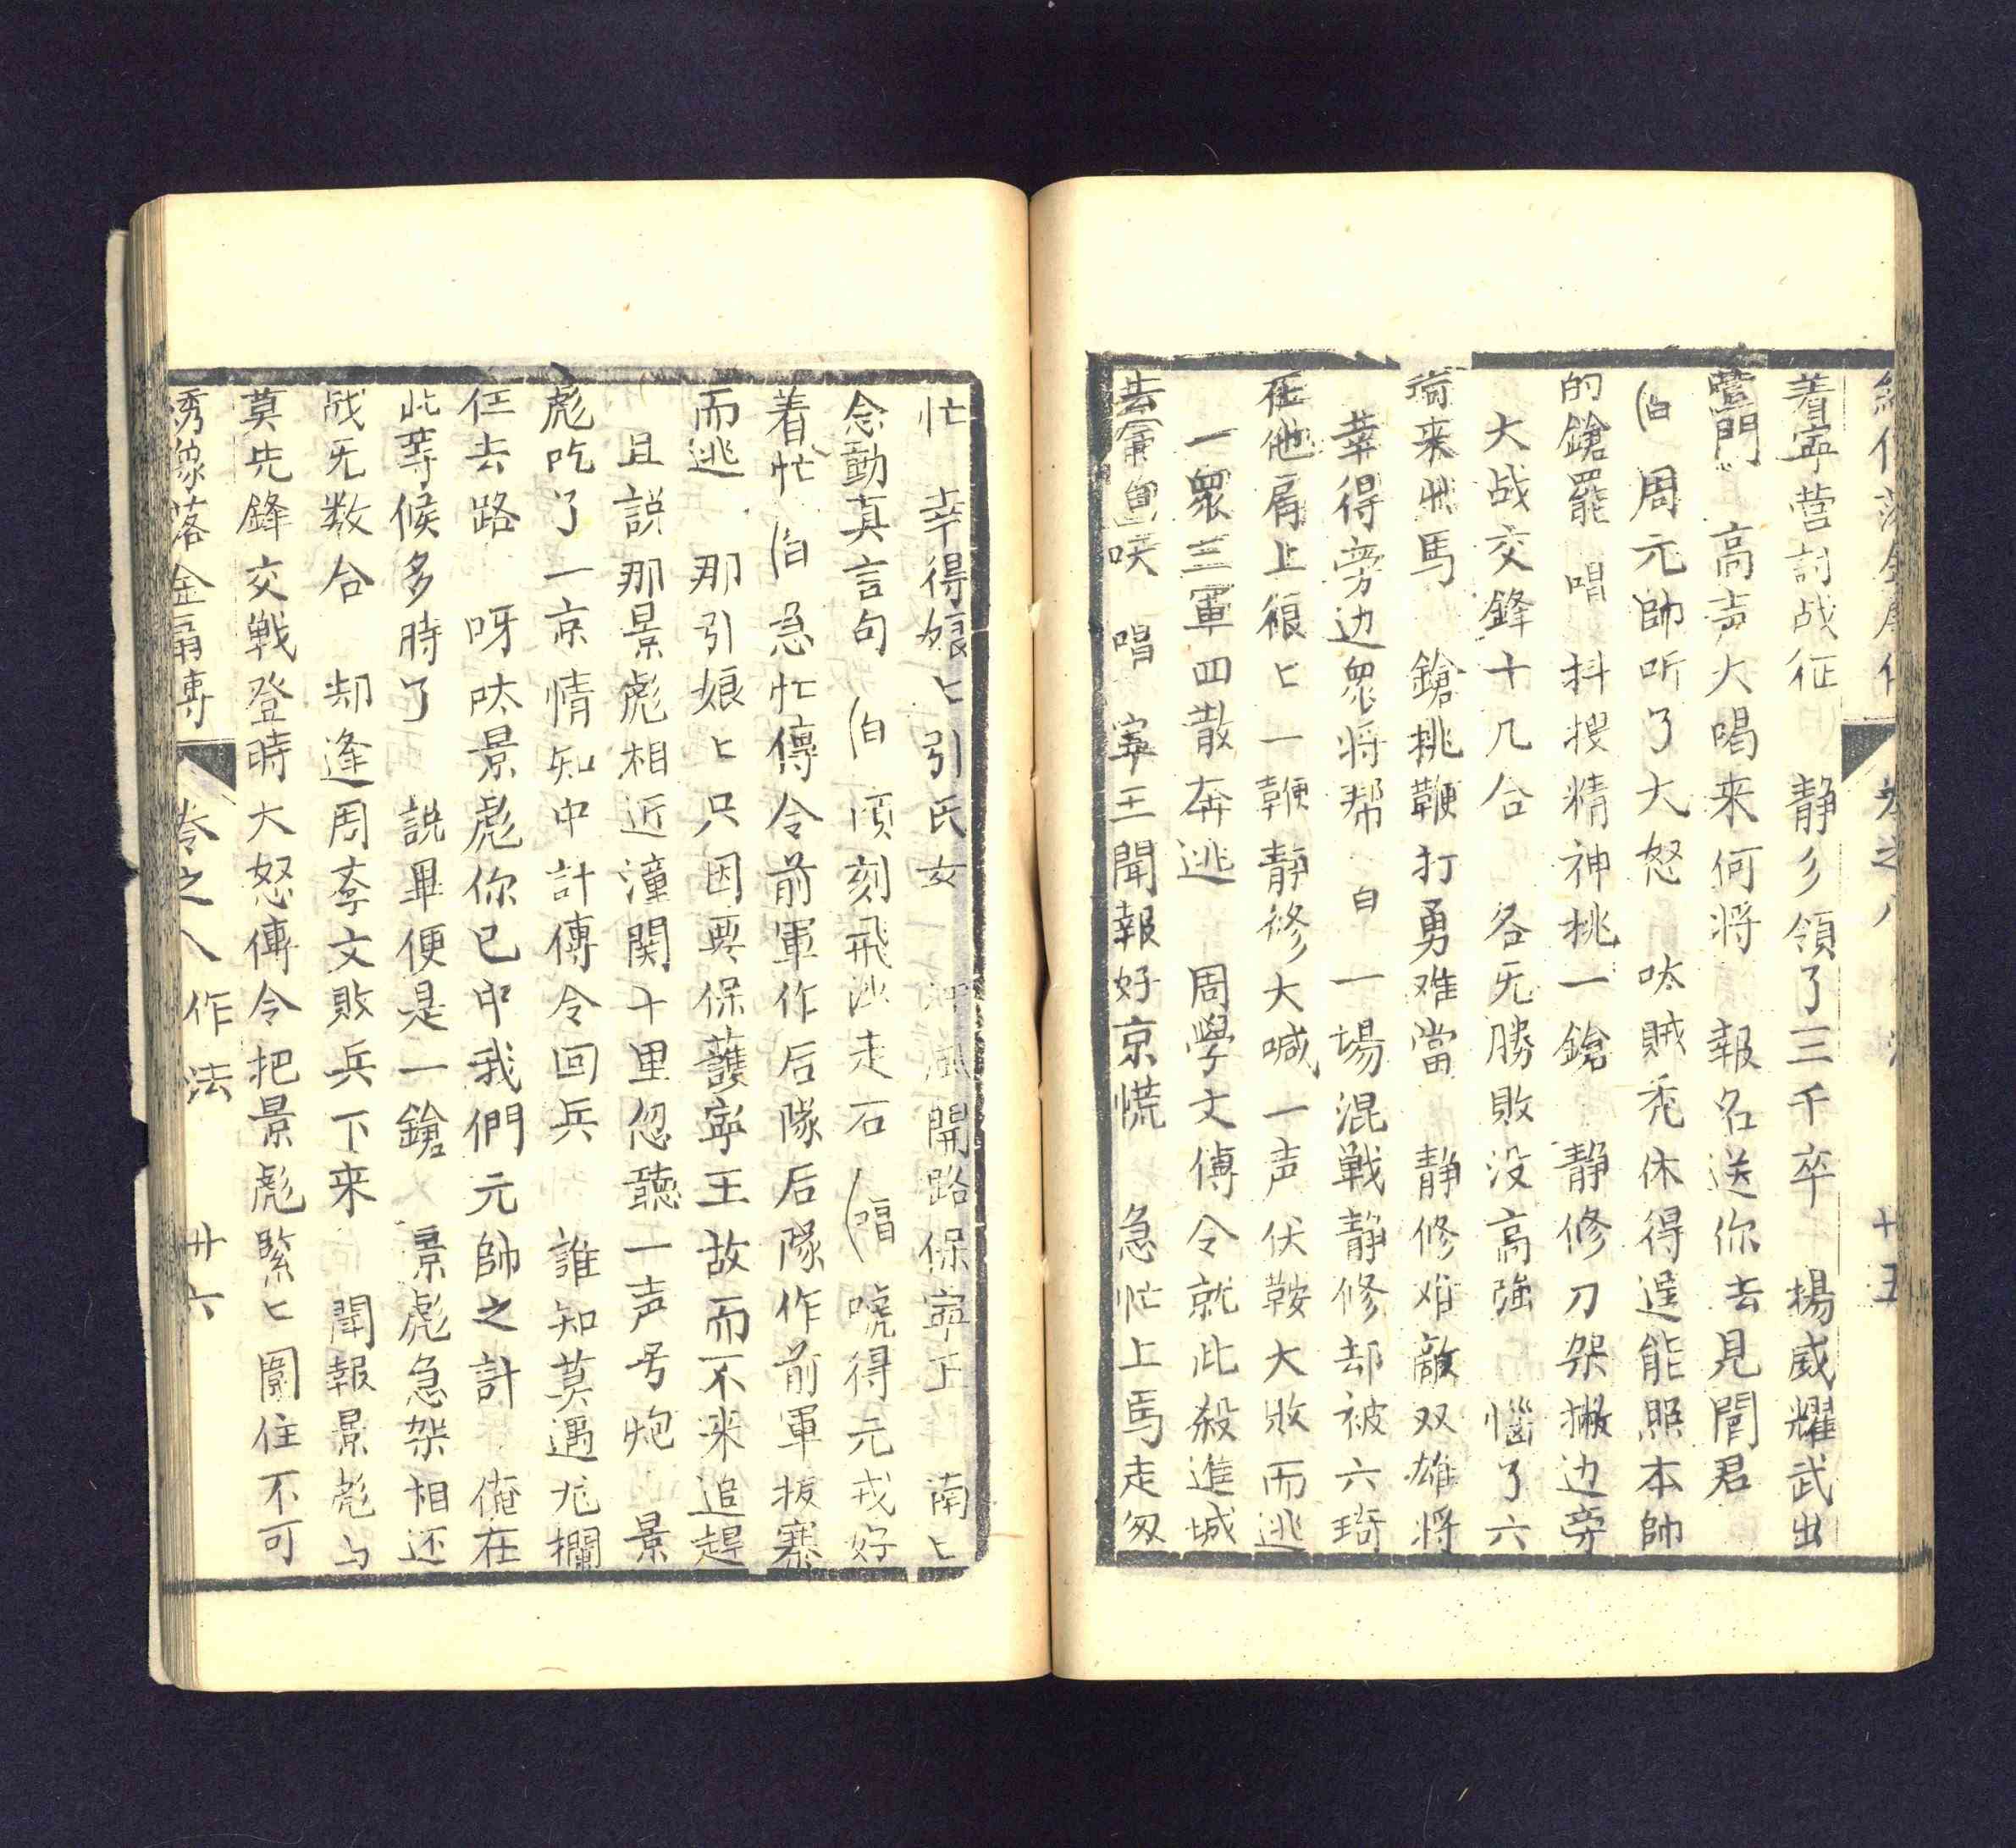 卷之八 十五
着寧营討战征 静彡領了三千卒 揚威耀武出
營門 高声大喝来何将 報名送你去見閻君
白 周元帥听了大怒 呔賊禿休得逞能照本帥
的鎗罷 唱 抖搜精神挑一鎗 静修刀架撇边旁
大战交鋒十几合 各旡勝敗没高強 惱了六
琦来㳀馬 鎗挑鞭打勇难當 静修难敵双雄将
幸得旁边眾将帮 白 一場混戰静修却被六琦
在他肩上很匕一鞭静修大喊一声伏鞍大敗而逃
一眾三軍四散奔逃 周學文傳令就此殺進城
去 唱 寧王聞報好京慌 急忙上馬走匆
忙 幸得娘匕引氏女 風開路保寧王 喃匕
念動真言句 白 頃刻飛沙走石 唱 唬得元戎好
着忙 白 急忙傳令前軍作后隊后隊作前軍拔寨
而逃 那引娘匕只因要保護寧王故而不来追趕
且說那景彪相近潼関十里忽聽一声号炮 景
彪吃了一京情知中計傳令回兵 誰知莫遇尤攔
住去路 呀呔景彪你已中我們元帥之計 俺在
此等候多時了 說畢便是一鎗 景彪急架相还
战旡数合 却逢周李文敗兵下来 聞報景彪与
莫先鋒交戰登時大怒傳令把景彪緊匕圍住不可
綉像落金扇傳 卷之八 作法 廿六